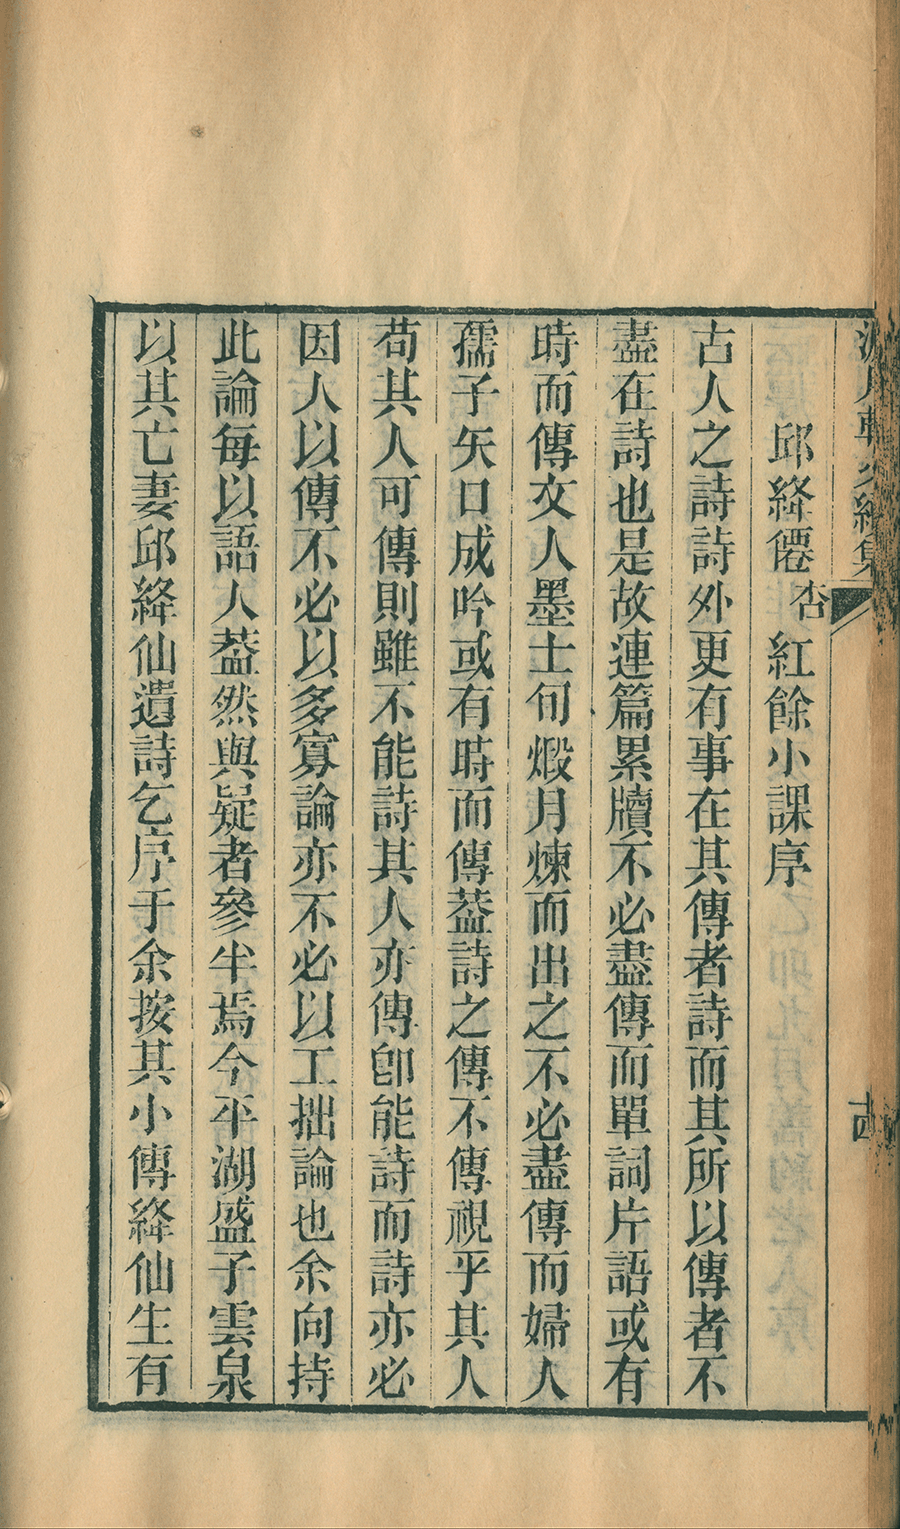 邱絳僊杏紅餘小課序
古人之詩詩外更有事在其傳者詩而其所以傳者不
盡在詩也是故連篇累牘不必盡傳而單詞片語或有
時而傳文人墨士句煅月煉而出之不必盡傳而婦人
孺子矢口成吟或有時而傳葢詩之傳不傳視乎其人
苟其人可傳則雖不能詩其人亦傳卽能詩而詩亦必
因人以傳不必以多寡論亦不必以工拙論也余向持
此論每以語人葢然與疑者參半焉今平湖盛子雲泉
以其亡妻邱絳仙遺詩乞序于余按其小傳絳仙生有